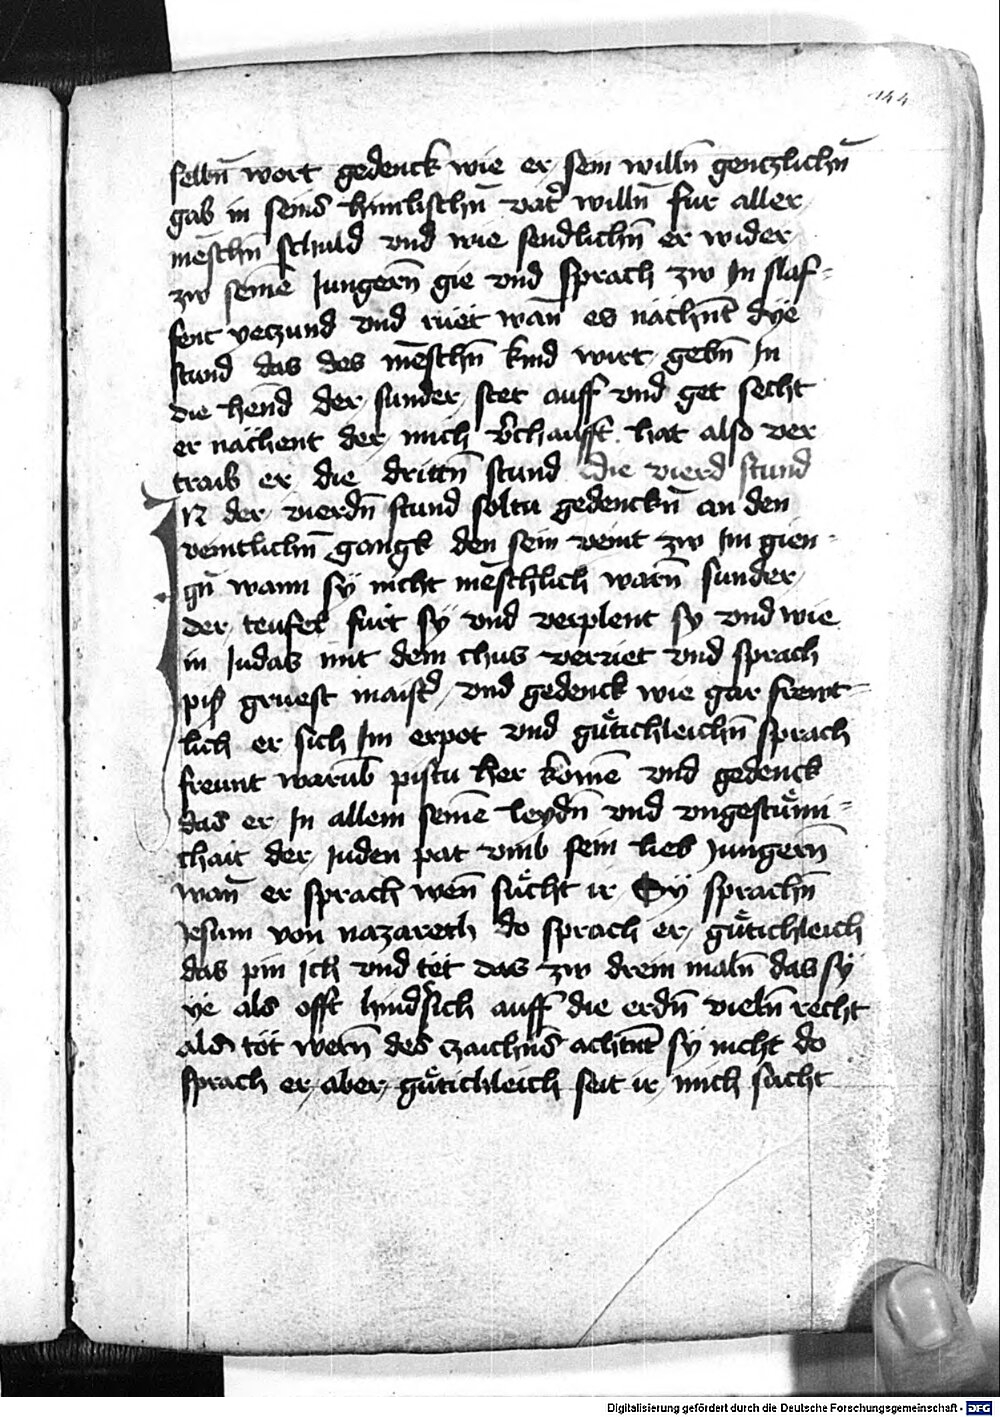 144
selbñ wort gedenck wie er sein willñ gentzlichñ
gab in seins himlischñ vatr̃ willñ fur aller
mẽschñ schuld vnd wie sendlichñ er wider
zw seinẽ Jungerñ gie vnd sprach zw In slaf=
fent yetzund vnd ruet wañ es nächñt dÿe
stund das des mẽschñ kind wirt gebñ In
die hend der sunder stet auff vnd get secht
er nächent der mich v̾chaufft hat also ver
traib er die drittñ stund die vierd stund
IN der vierdñ stund soltu gedenckñ an den
veintlichñ gangk den sein veint zw Im gien=
gñ wann sÿ nicht mẽschlich warñ sunder
der teufel furt sÿ vnd verplent sy vnd wie
in Judas mit dem chus verriet vnd sprach
pis gruest maist̾ vnd gedenck wie gar frewnt=
lich er sich Im erpot vnd gütichleichñ sprach
freunt warũb pistu her komẽ vnd gedenck
das er In allem seinẽ leydñ vnd vngestümi=
chait der Juden pat vmb sein lieb Jungerñ
wañ er sprach wen̄ sücht ir Sÿ sprachñ
Jesum von nazareth do sprach er gütichleich
das pin Ich vnd tet das zw drein malñ das sÿ
ye als offt hindsich auff die erdñ vielñ recht
als töt werñ des zaichñs achtñt sÿ nicht do
sprach er aber gütichleich seit ir mich sücht
Digitalisierung gefördert durch die Deutsche Forschungsgemeinschaft - DFG